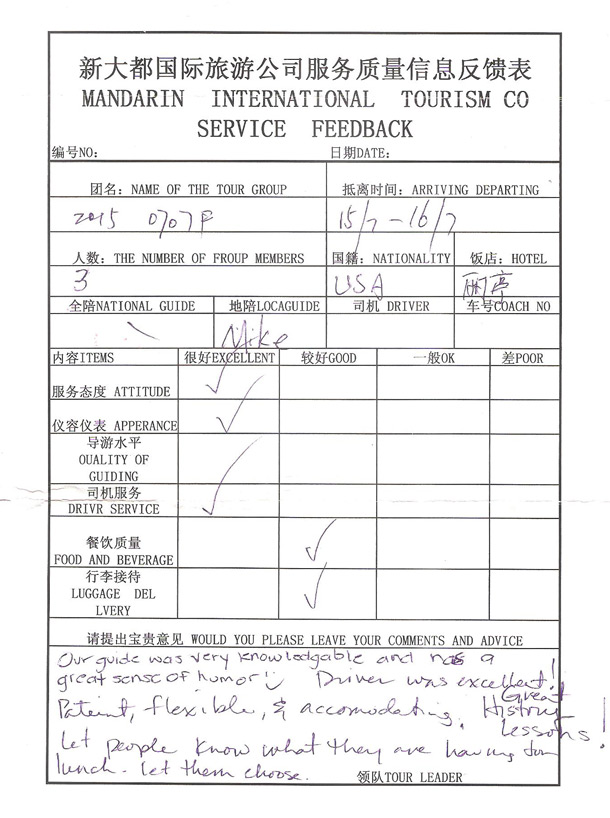 新大都国际旅游公司服务质量信息反馈表
MANDARIN INTERNATIONAL TOURISM CO
SERVICE FEEDBACK
编号NO: 日期DATE:
团名: NAME OF THE TOUR GROUP 抵离时间: ARRIVING DEPARTING
2015 0707F 15/7-16/7
人数: THE NUMBER OF FROUP MEMBERS 国籍: NATIONALITY 饭店: HOTEL
3 USA 丽亭
全陪NATIONAL GUIDE 地陪LOCAGUIDE 司机 DRIVER 车号COACH NO
Mike
内容ITEMS 很好EXCELLENT 较好GOOD 一般OK 差POOR
服务态度 ATTITUDE ✓
仪容仪表 APPERANCE ✓
导游水平
OUALITY OF
GUIDING
司机服务
DRIVR SERVICE ✓
餐饮质量
FOOD AND BEVERAGE ✓
行李接待
LUGGAGE DEL
LVERY ✓
请提出宝贵意见 WOULD YOU PLEASE LEAVE YOUR COMMENTS AND ADVICE
Our guide was very knowledgable and has a
great sense of humor Driver was excellent!
Patient, flexible, & accomodating. Great
History
Lessons!
Let people know what they are having for
lunch. Let them choose.
领队TOUR LEADER